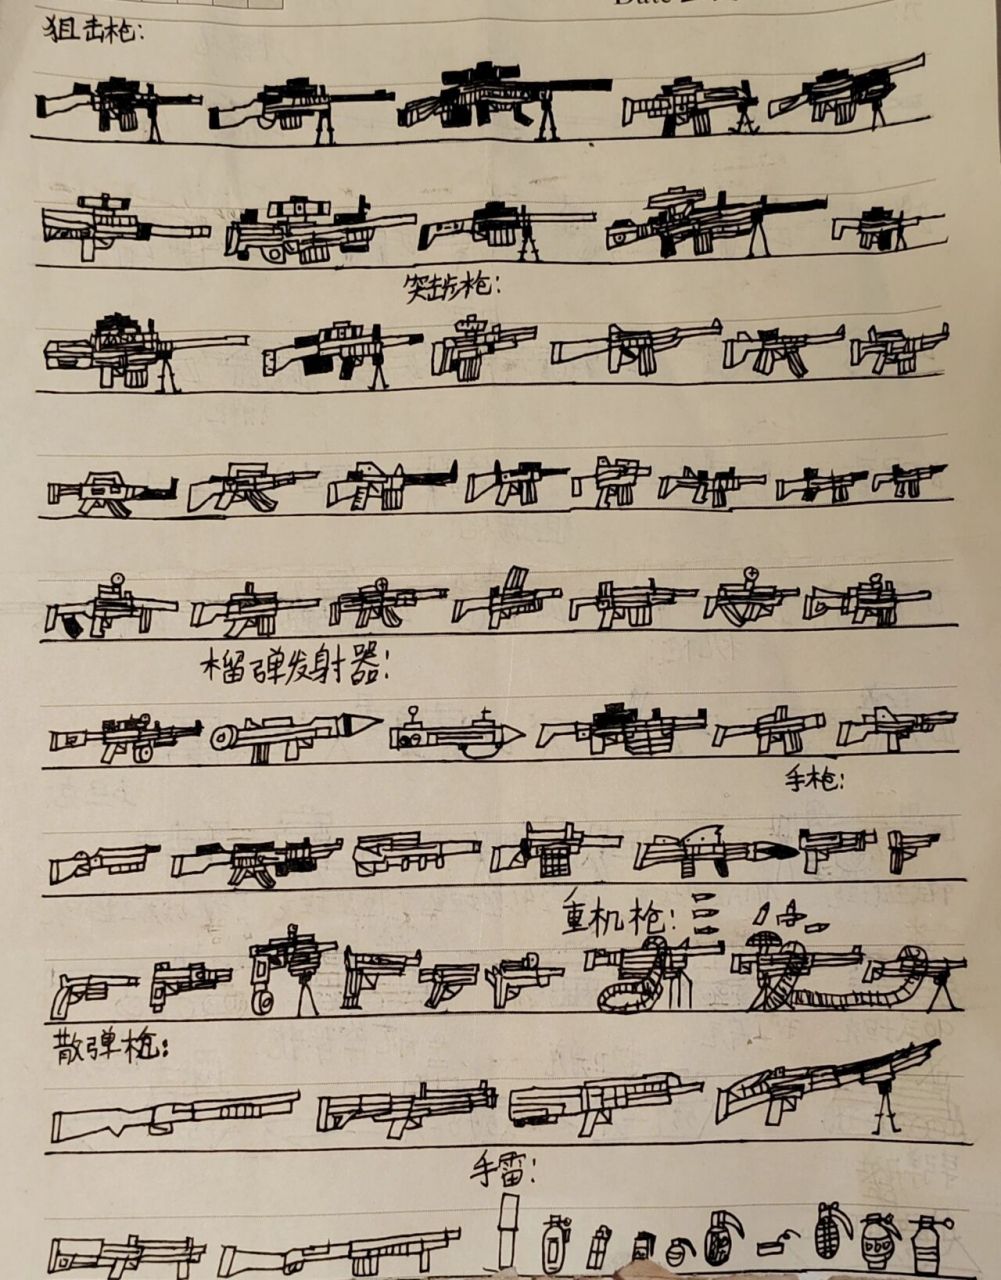 Date
狙击枪:
突击步枪:
榴弹发射器:
手枪:
重机枪:
散弹枪:
手雷: